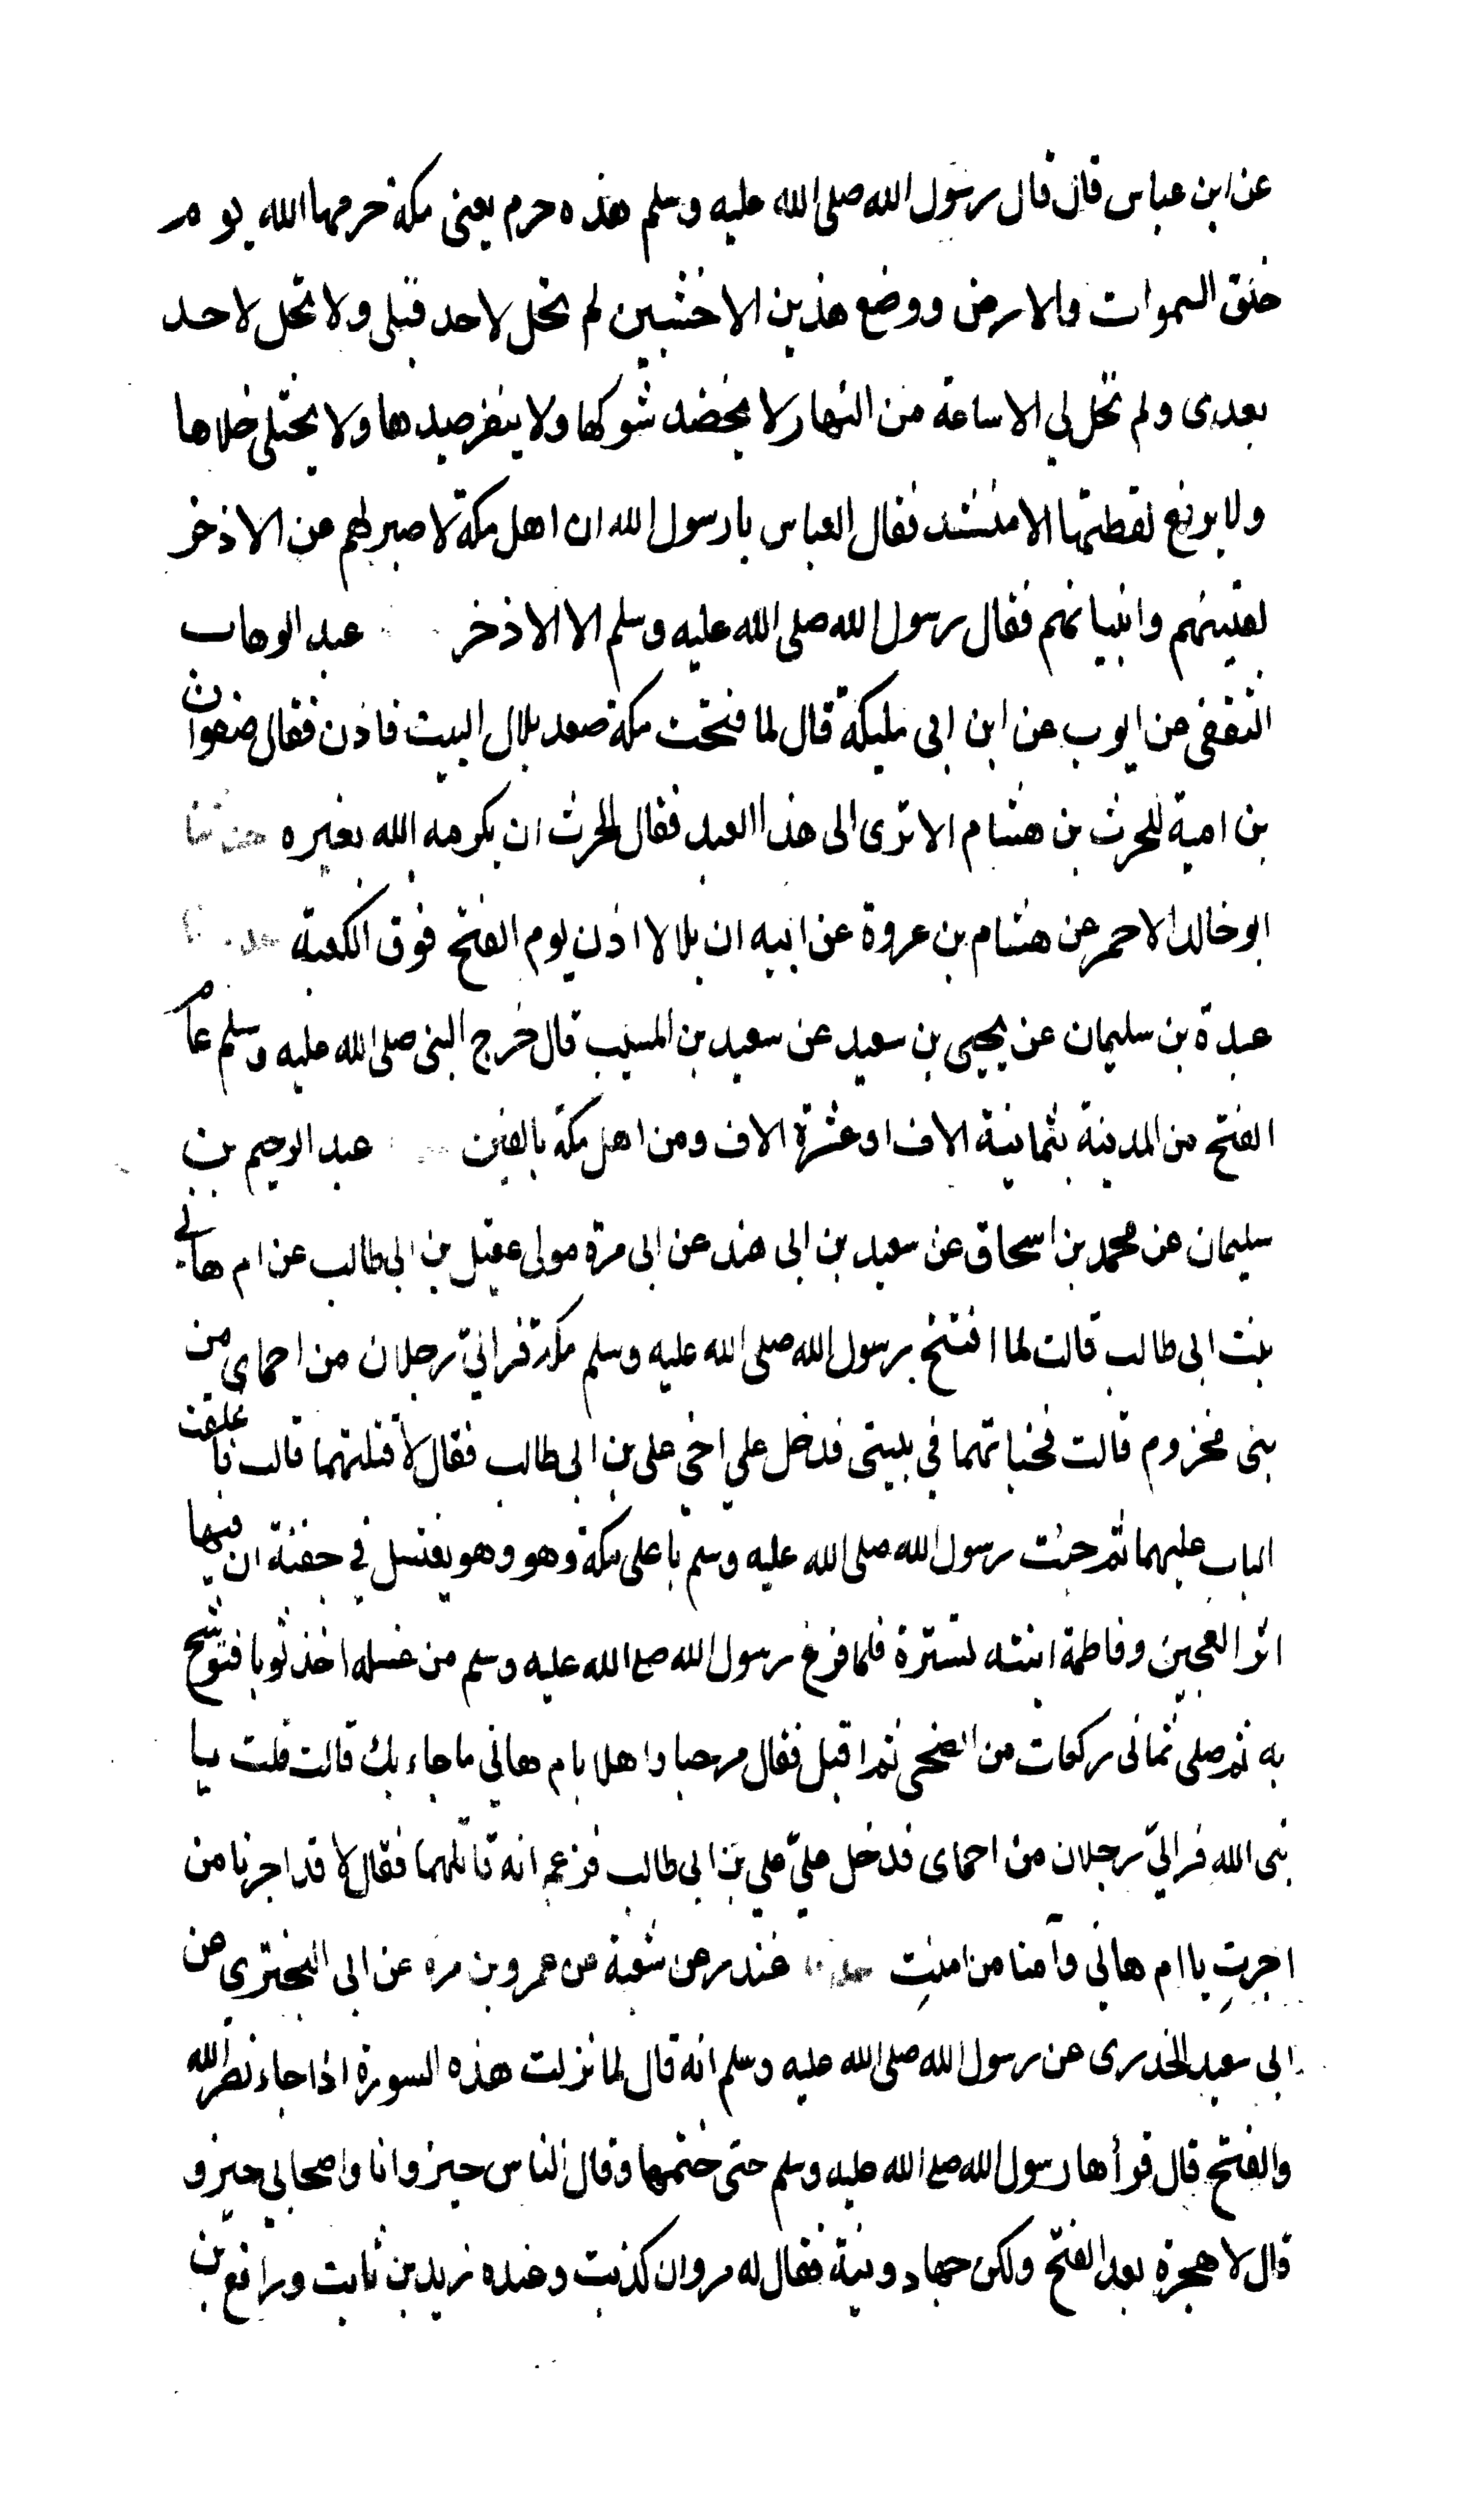 عن ابن عباس قال قال رسول الله صلى الله عليه وسلم هذه حرم يعنى مكة حرمها الله يوم
خلق السموات والارض ووضع هذين الاخشبين لم تحل لاحد قبلى ولا تحل لاحد
بعدى ولم تحل لي الا ساعة من النهار لا يخضد شوكها ولا ينفر صيدها ولا يختلى خلاها
ولا يرفع لقطتها الا منشد فقال العباس يا رسول الله ان اهل مكة لا صبر لهم عن الاذخر
لقينهم وابنيانهم فقال رسول الله صلى الله عليه وسلم الا الاذخر عبد الوهاب
الثقفى عن ايوب عن ابن ابى مليكة قال لما فتحت مكة صعد بلال البيت فاذن فقال صفوان
بن امية للحرث بن هشام الا ترى الى هذا العبد فقال الحرث ان يكرهه الله يغيره حدثنا
ابو خالد الاحمر عن هشام بن عروة عن ابيه ان بلالا اذن يوم الفتح فوق الكعبة حدثنا
عبدة بن سليمان عن يحيى بن سعيد عن سعيد بن المسيب قال خرج النبى صلى الله عليه وسلم عام
الفتح من المدينة بثمانية الاف او عشرة الاف ومن اهل مكة بالفين عبد الرحيم بن
سليمان عن محمد بن اسحاق عن سعيد بن ابى هند عن ابى مرة مولى عقيل بن ابى طالب عن ام هانى
بنت ابى طالب قالت لما افتتح رسول الله صلى الله عليه وسلم مكة فر اليّ رجلان من احماى من
بنى مخزوم قالت فخباتهما في بيتى فدخل علي اخي على بن ابى طالب فقال لأقتلنهما قالت فاغلقت
الباب عليهما ثم جئت رسول الله صلى الله عليه وسلم باعلى مكة وهو وهو يغتسل في جفنة ان فيها
اثر العجين وفاطمة ابنته تستره فلما فرغ رسول الله صلى الله عليه وسلم من غسله اخذ ثوبا فتوشح
به ثم صلى ثمانى ركعات من الضحى ثم اقبل فقال مرحبا واهلا بام هاني ما جاء بك قالت قلت يا
نبى الله فر اليّ رجلان من احماى فدخل عليّ علي بن ابى طالب فزعم انه قاتلهما فقال لا قد اجرنا من
اجرتِ يا ام هاني وآمنا من امنتِ حدثنا غندر عن شعبة عن عمرو بن مرة عن ابى البخترى عن
ابى سعيد الخدرى عن رسول الله صلى الله عليه وسلم انه قال لما نزلت هذه السورة اذا جاء نصر الله
والفتح قال قرأها رسول الله صلى الله عليه وسلم حتى ختمها وقال الناس حيز وانا واصحابي حيز و
قال لا هجرة بعد الفتح ولكن جهاد ونية فقال له مروان كذبت وعنده زيد بن ثابت ورافع بن